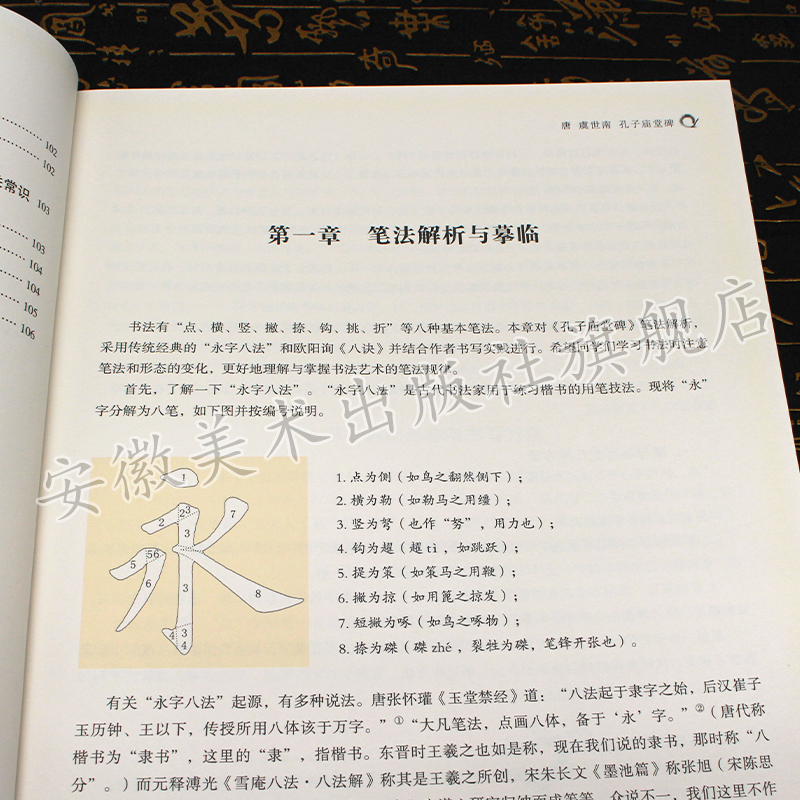 102
102
常识 103
103
104
104
105
106
唐 虞世南 孔子庙堂碑
第一章 笔法解析与摹临
书法有“点、横、竖、撇、捺、钩、挑、折”等八种基本笔法。本章对《孔子庙堂碑》笔法解析，
采用传统经典的“永字八法”和欧阳询《八诀》并结合作者书写实践进行。希望同学们学习书法时注意
笔法和形态的变化，更好地理解与掌握书法艺术的笔法规律。
首先，了解一下“永字八法”。“永字八法”是古代书法家用于练习楷书的用笔技法。现将“永”
字分解为八笔，如下图并按编号说明。
1
2 23 7
3
5 56
6 3 8
4 3
4
1. 点为侧（如鸟之翻然侧下）；
2. 横为勒（如勒马之用缰）；
3. 竖为弩（也作“努”，用力也）；
4. 钩为趯（趯 tì，如跳跃）；
5. 提为策（如策马之用鞭）；
6. 撇为掠（如用篦之掠发）；
7. 短撇为啄（如鸟之啄物）；
8. 捺为磔（磔 zhé，裂牲为磔，笔锋开张也）。
有关“永字八法”起源，有多种说法。唐张怀瓘《玉堂禁经》道：“八法起于隶字之始，后汉崔子
玉历钟、王以下，传授所用八体该于万字。”①“大凡笔法，点画八体，备于‘永’字。”②（唐代称
楷书为“隶书”，这里的“隶”，指楷书。东晋时王羲之也如是称，现在我们说的隶书，那时称“八
分”。）而元释溥光《雪庵八法·八法解》称其是王羲之所创，宋朱长文《墨池篇》称张旭（宋陈思
众说不一，我们这里不作
安徽美术出版社旗舰店